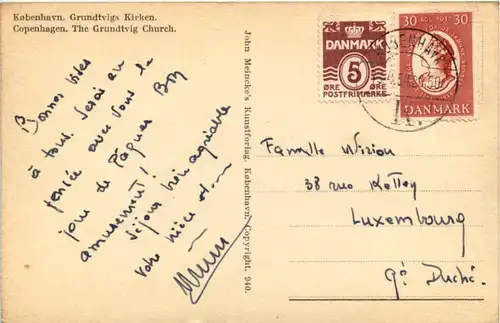 København. Grundtvigs Kirken.
Copenhagen. The Grundtvig Church.
Bonnes fêtes
à tous. Serai en
pensée avec vous le
jour de Pâques. Bon
amusement!
Séjour très agréable
Votre nièce
John Meincke's Kunstforlag. København. Copyright. 940.
DANMARK
5
ØRE ØRE
POSTFRIMÆRKE
30 30
DANMARK
KØBENHAVN
Famille
38 rue
Luxembourg
Gd Duché.